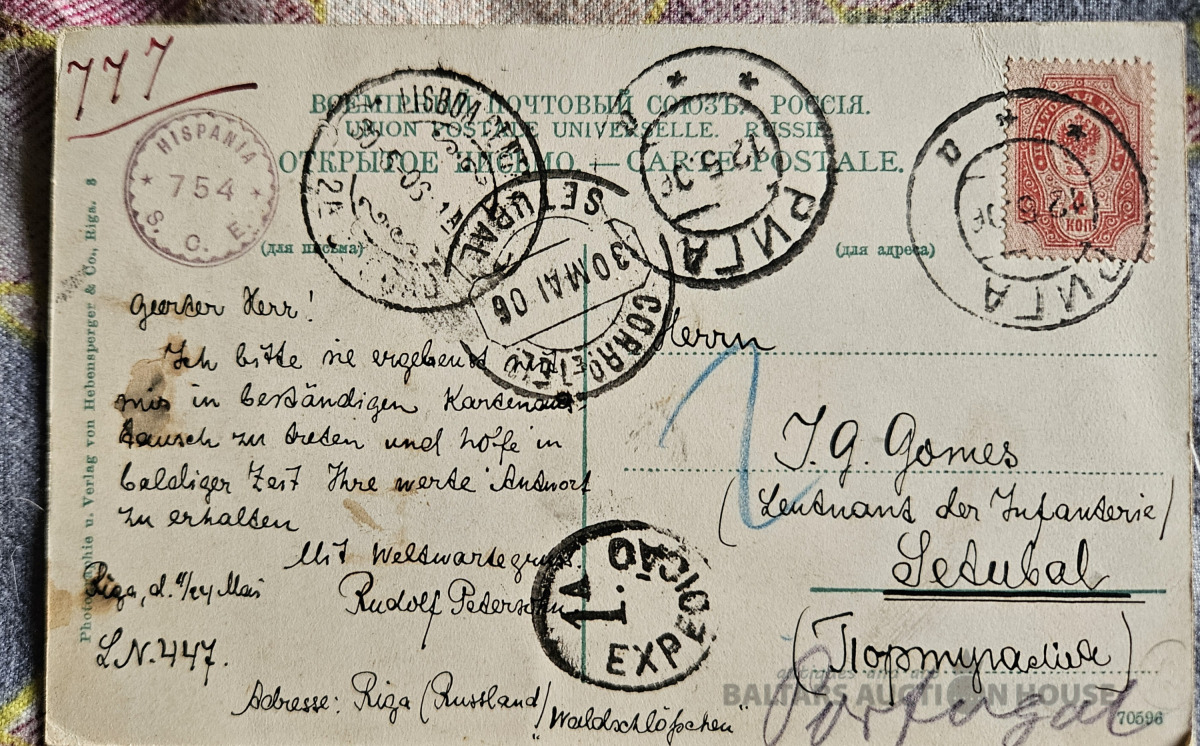 777
HISPANIA
754
S. C. E.
ВСЕМІРНЫЙ ПОЧТОВЫЙ СОЮЗЪ. РОССІЯ.
UNION POSTALE UNIVERSELLE. RUSSIE
ОТКРЫТОЕ ПИСЬМО. — CARTE POSTALE.
LISBOA
РИГА
12 5 06
РИГА
12
06
КОП
SETUBAL
30 MAI 06
CORREIO
(для письма)
(для адреса)
Geerter Herr!
Ich bitte sie ergebenst mit
mir in beständigen Kartenaus-
tausch zu treten und hoffe in
baldiger Zeit Ihre werte Antwort
zu erhalten
Mit Weltwartegruss
Riga, d. 11/24 Mai
Rudolf Petersohn
L.N. 447.
Adresse: Riga (Russland)
"Waldschlößchen"
Herrn
J. G. Gomes
(Leutnant der Infanterie)
Setubal
(Португалия)
Portugal
1A
EXPEDIÇÃO
BALTARS AUCTION HOUSE
70596
Photographie u. Verlag von Hebensperger & Co., Riga. 8